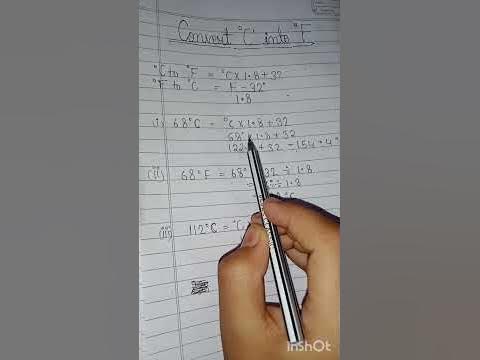 Convert °C into °F
°C to °F = °C x 1.8 + 32
°F to °C = F - 32°
1.8
(i) 68°C = °C x 1.8 + 32
68° x 1.8 + 32
+ 32 = 154.4°
(ii) 68°F = 68° 32 ÷ 1.8
÷ 1.8
(iii) 112°C = °C
InShOt